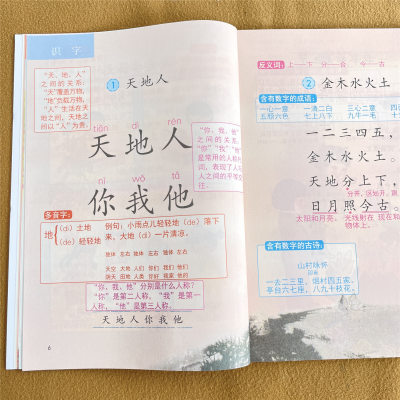 识 字
“天、地、人”
之间的关系：
“天”覆盖万物，
“地”负载万物，
“人”生活在天
地之间。天地之
间以“人”为贵。
1 天地人
tiān dì rén
天 地 人
“你、我、他”
之间的关系：
“你”“我”“他”
是常用的人称代
词，表现了人与
人之间的平等交
往。
nǐ wǒ tā
你 我 他
多音字：
地
（dì）土地
（de）轻轻地
例句：小雨点儿轻轻地（de）落下
来，大地（dì）一片清凉。
独体 左右 独体 左右 独体 左右
天空 大地 人们 你们 我们 他们
“你、我、他”分别是什么人称？
“你”是第二人称，“我”是第一
人称，“他”是第三人称。
天 地 人 你 我 他
6
反义词：
上——下 分——合 今——古
2 金木水火土
含有数字的成语：
一心一意 一清二白 三心二意
五颜六色 七上八下 九牛一毛
一二三四五，
金木水火土。
天地分上下，
日月照今古。
太阳和月亮。
含有数字的古诗：
山村咏怀
一去二三里，烟村四五家。
亭台六七座，八九十枝花。